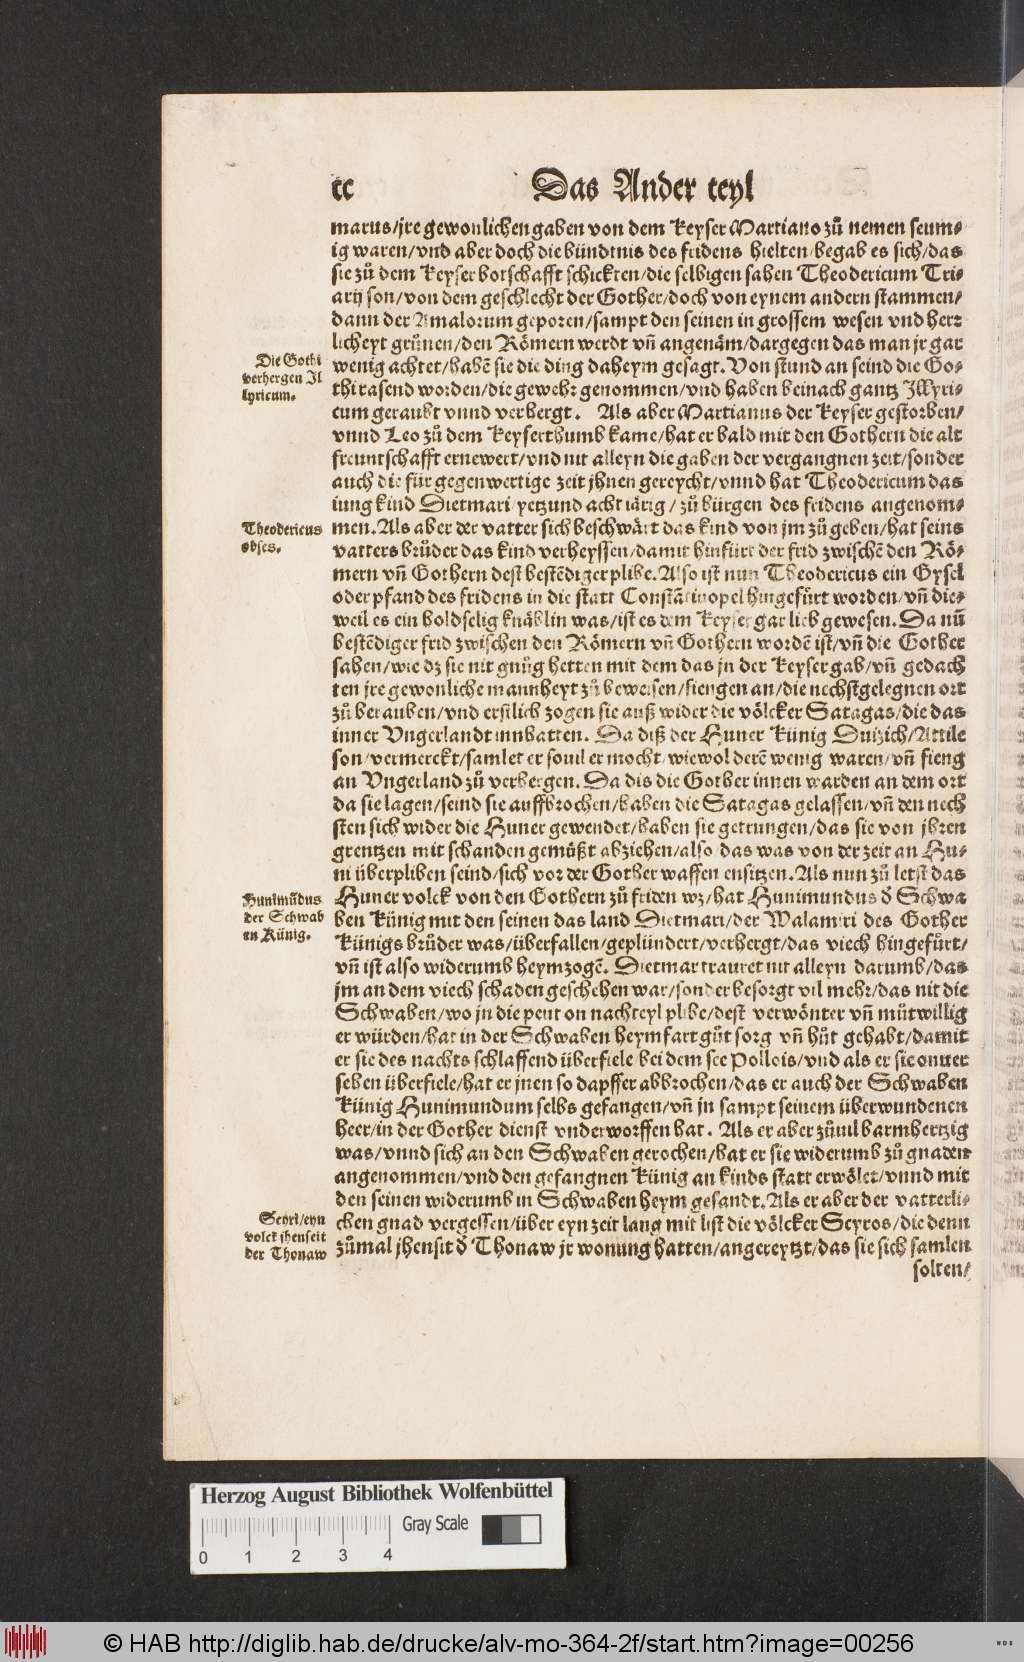 cc Das Ander teyl
marus/jre gewonlichen gaben von dem Keyser Martiano zů nemen seum⸗
ig waren/vnd aber doch die bündtnis des fridens hielten/begab es sich/das
sie zů dem Keyser botschafft schickten/die selbigen sahen Theodericum Tri⸗
arij son/von dem geschlecht der Gother/doch von eynem andern stammen/
dann der Amalorum geporen/sampt den seinen in grossem wesen vnd herr
licheyt grůnen/den Römern werdt vñ angenäm/dargegen das man jr gar
Die Gothi
verhergen Il
lyricum.
wenig achtet/habẽ sie die ding daheym gesagt. Von stund an seind die Go⸗
thi rasend worden/die gewehr genommen/vnd haben beinach gantz Illyri⸗
cum geraubt vnnd verhergt. Als aber Martianus der Keyser gestorben/
vnnd Leo zů dem Keyserthumb kame/hat er bald mit den Gothern die alt
freuntschafft ernewert/vnd nit alleyn die gaben der vergangnen zeit/sonder
auch die für gegenwertige zeit jhnen gereycht/vnnd hat Theodericum das
iung kind Dietmari/yetzund acht iärig/zů bürgen des fridens angenom⸗
Theodericus
obses.
men. Als aber der vatter sich beschwärt das kind von jm zů geben/hat seins
vatters brůder das kind verheyssen/damit hinfürt der frid zwischẽ den Rö⸗
mern vñ Gothern dest bestẽdiger plibe. Also ist nun Theodericus ein Gysel
oder pfand des fridens in die statt Constãtinopel hingefůrt worden/vñ die⸗
weil es ein holdselig knäblin was/ist es dem Keyser gar lieb gewesen. Da nũ
bestẽdiger frid zwischen den Römern vñ Gothern wordẽ ist/vñ die Gother
sahen/wie dz sie nit gnůg hetten mit dem das jn der Keyser gab/vñ gedach
ten jre gewonliche mannheyt zů beweisen/fiengen an/die nechstgelegnen ort
zů berauben/vnd erstlich zogen sie auß wider die völcker Satagas/die das
inner Vngerlandt innhatten. Da diß der Huner Künig Duizich/Attile
son/vermerckt/samlet er souil er mocht/wiewol derẽ wenig waren/vñ fieng
an Vngerland zů verhergen. Da dis die Gother innen warden an dem ort
da sie lagen/seind sie auffbrochen/haben die Satagas gelassen/vñ den nech
sten sich wider die Huner gewendet/haben sie getrungen/das sie von jhren
grentzen mit schanden gemůßt abziehen/also/das was von der zeit an Hu⸗
ni überpliben seind/sich vor der Gother waffen entsitzen. Als nun zů letst das
Hunimũdus
der Schwab
en Künig.
Huner volck von den Gothern zů friden wz/hat Hunimundus d̕ Schwa
ben Künig mit den seinen das land Dietmari/der Walamiri des Gother
Künigs brůder was/überfallen/geplündert/verhergt/das viech hingefůrt/
vñ ist also widerumb heymzogẽ. Dietmar trauret nit alleyn darumb/das
jm an dem viech schaden geschehen war/sonder besorgt vil mehr/das nit die
Schwaben/wo jn die peut on nachteyl plibe/dest verwönter vñ můtwillig
er würden/hat in der Schwaben heymfart gůt sorg vñ hůt gehabt/damit
er sie des nachts schlaffend überfiele bei dem see Pollois/vnd als er sie onuer
sehen überfiele/hat er jnen so dapffer abbrochen/das er auch der Schwaben
Künig Hunimundum selbs gefangen/vñ jn sampt seinem überwundenen
heer/in der Gother dienst vnderworffen hat. Als er aber zůuil barmhertzig
was/vnnd sich an den Schwaben gerochen/hat er sie widerumb zů gnaden
angenommen/vnd den gefangnen Künig an kinds statt erwölet/vnnd mit
den seinen widerumb in Schwaben heym gesandt. Als er aber der vatterli⸗
Scyri/eyn
volck jhenseit
der Thonaw
chen gnad vergessen/über eyn zeit lang mit list die völcker Scyros/die denn
zůmal jhensit d̕ Thonaw jr wonung hatten/angereytzt/das sie sich samlen
solten/
Herzog August Bibliothek Wolfenbüttel
Gray Scale
0 1 2 3 4
© HAB http://diglib.hab.de/drucke/alv-mo-364-2f/start.htm?image=00256